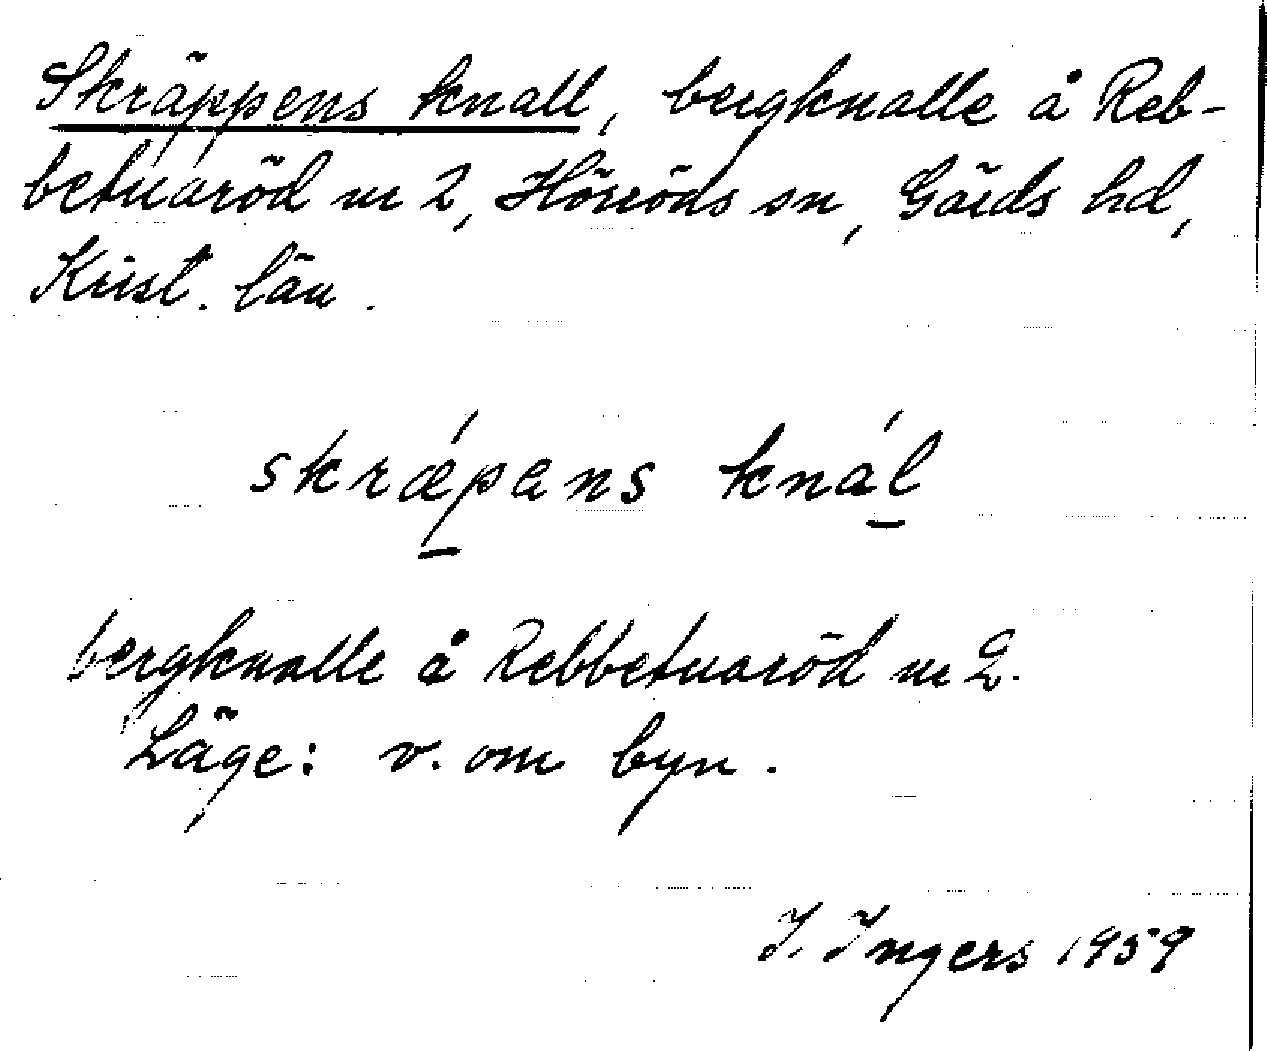 Skräppens knall, bergknalle å Reb-
betuaröd nr 2, Hörröds sn, Gärds hd,
Krist. län.
skrǽpans knál
bergknalle å Rebbetuaröd nr 2.
Läge: v. om byn.
I. Ingers 1959